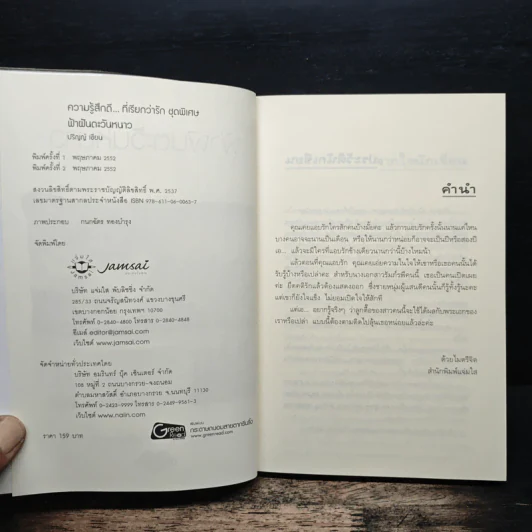 ความรู้สึกดี... ที่เรียกว่ารัก ชุดพิเศษ
ฟ้าฝันตะวันหนาว
ปริญญ์ เขียน
พิมพ์ครั้งที่ 1 พฤษภาคม 2552
พิมพ์ครั้งที่ 2 พฤษภาคม 2553
สงวนลิขสิทธิ์ตามพระราชบัญญัติลิขสิทธิ์ พ.ศ. 2537
เลขมาตรฐานสากลประจำหนังสือ ISBN 978-611-06-0063-7
ภาพประกอบ กนกฉัตร ทองบำรุง
จัดพิมพ์โดย
jamsai
บริษัท แจ่มใส พับลิชชิ่ง จำกัด
285/33 ถนนจรัญสนิทวงศ์ แขวงบางขุนศรี
เขตบางกอกน้อย กรุงเทพฯ 10700
โทรศัพท์ 0-2840-4800 โทรสาร 0-2840-4848
อีเมล์ editor@jamsai.com
เว็บไซต์ www.jamsai.com
จัดจำหน่ายทั่วประเทศโดย
บริษัท อมรินทร์ บุ๊ค เซ็นเตอร์ จำกัด
108 หมู่ที่ 2 ถนนบางกรวย-จงถนอม
ตำบลมหาสวัสดิ์ อำเภอบางกรวย จ.นนทบุรี 11130
โทรศัพท์ 0-2423-9999 โทรสาร 0-2449-9561-3
เว็บไซต์ www.naiin.com
ราคา 159 บาท
Green Read
กระดาษถนอมสายตากรีนรี้ด
www.greenread.com
คำนำ
คุณเคยแอบรักใครสักคนบ้างมั้ยคะ แล้วการแอบรักครั้งนั้นนานแค่ไหน
บางคนอาจจะนานเป็นเดือน หรือให้นานกว่าหน่อยก็อาจจะเป็นปีหรือสองปี
เอ... แล้วจะมีใครที่แอบรักข้างเดียวนานกว่านี้บ้างไหมน้า
แล้วตอนที่คุณแอบรัก คุณเคยเผยความในใจให้เขาหรือเธอคนนั้นได้
รับรู้บ้างหรือเปล่าคะ สำหรับนางเอกสาวรัมภ์รพีคนนี้ เธอเป็นคนเปิดเผย
ค่ะ ยึดคติรักแล้วต้องแสดงออก ซึ่งชายหนุ่มผู้แสนดีคนนั้นก็รู้ทั้งรู้นะคะ
แต่เขาก็ยังใจแข็ง ไม่ยอมเปิดใจให้สักที
แต่เอ... อยากรู้จริงๆ ว่าลูกตื๊อของสาวคนนี้จะใช้ได้ผลกับพระเอกของ
เราหรือเปล่า แบบนี้ต้องตามติดไปลุ้นเธอหน่อยแล้วล่ะค่ะ
ด้วยไมตรีจิต
สำนักพิมพ์แจ่มใส